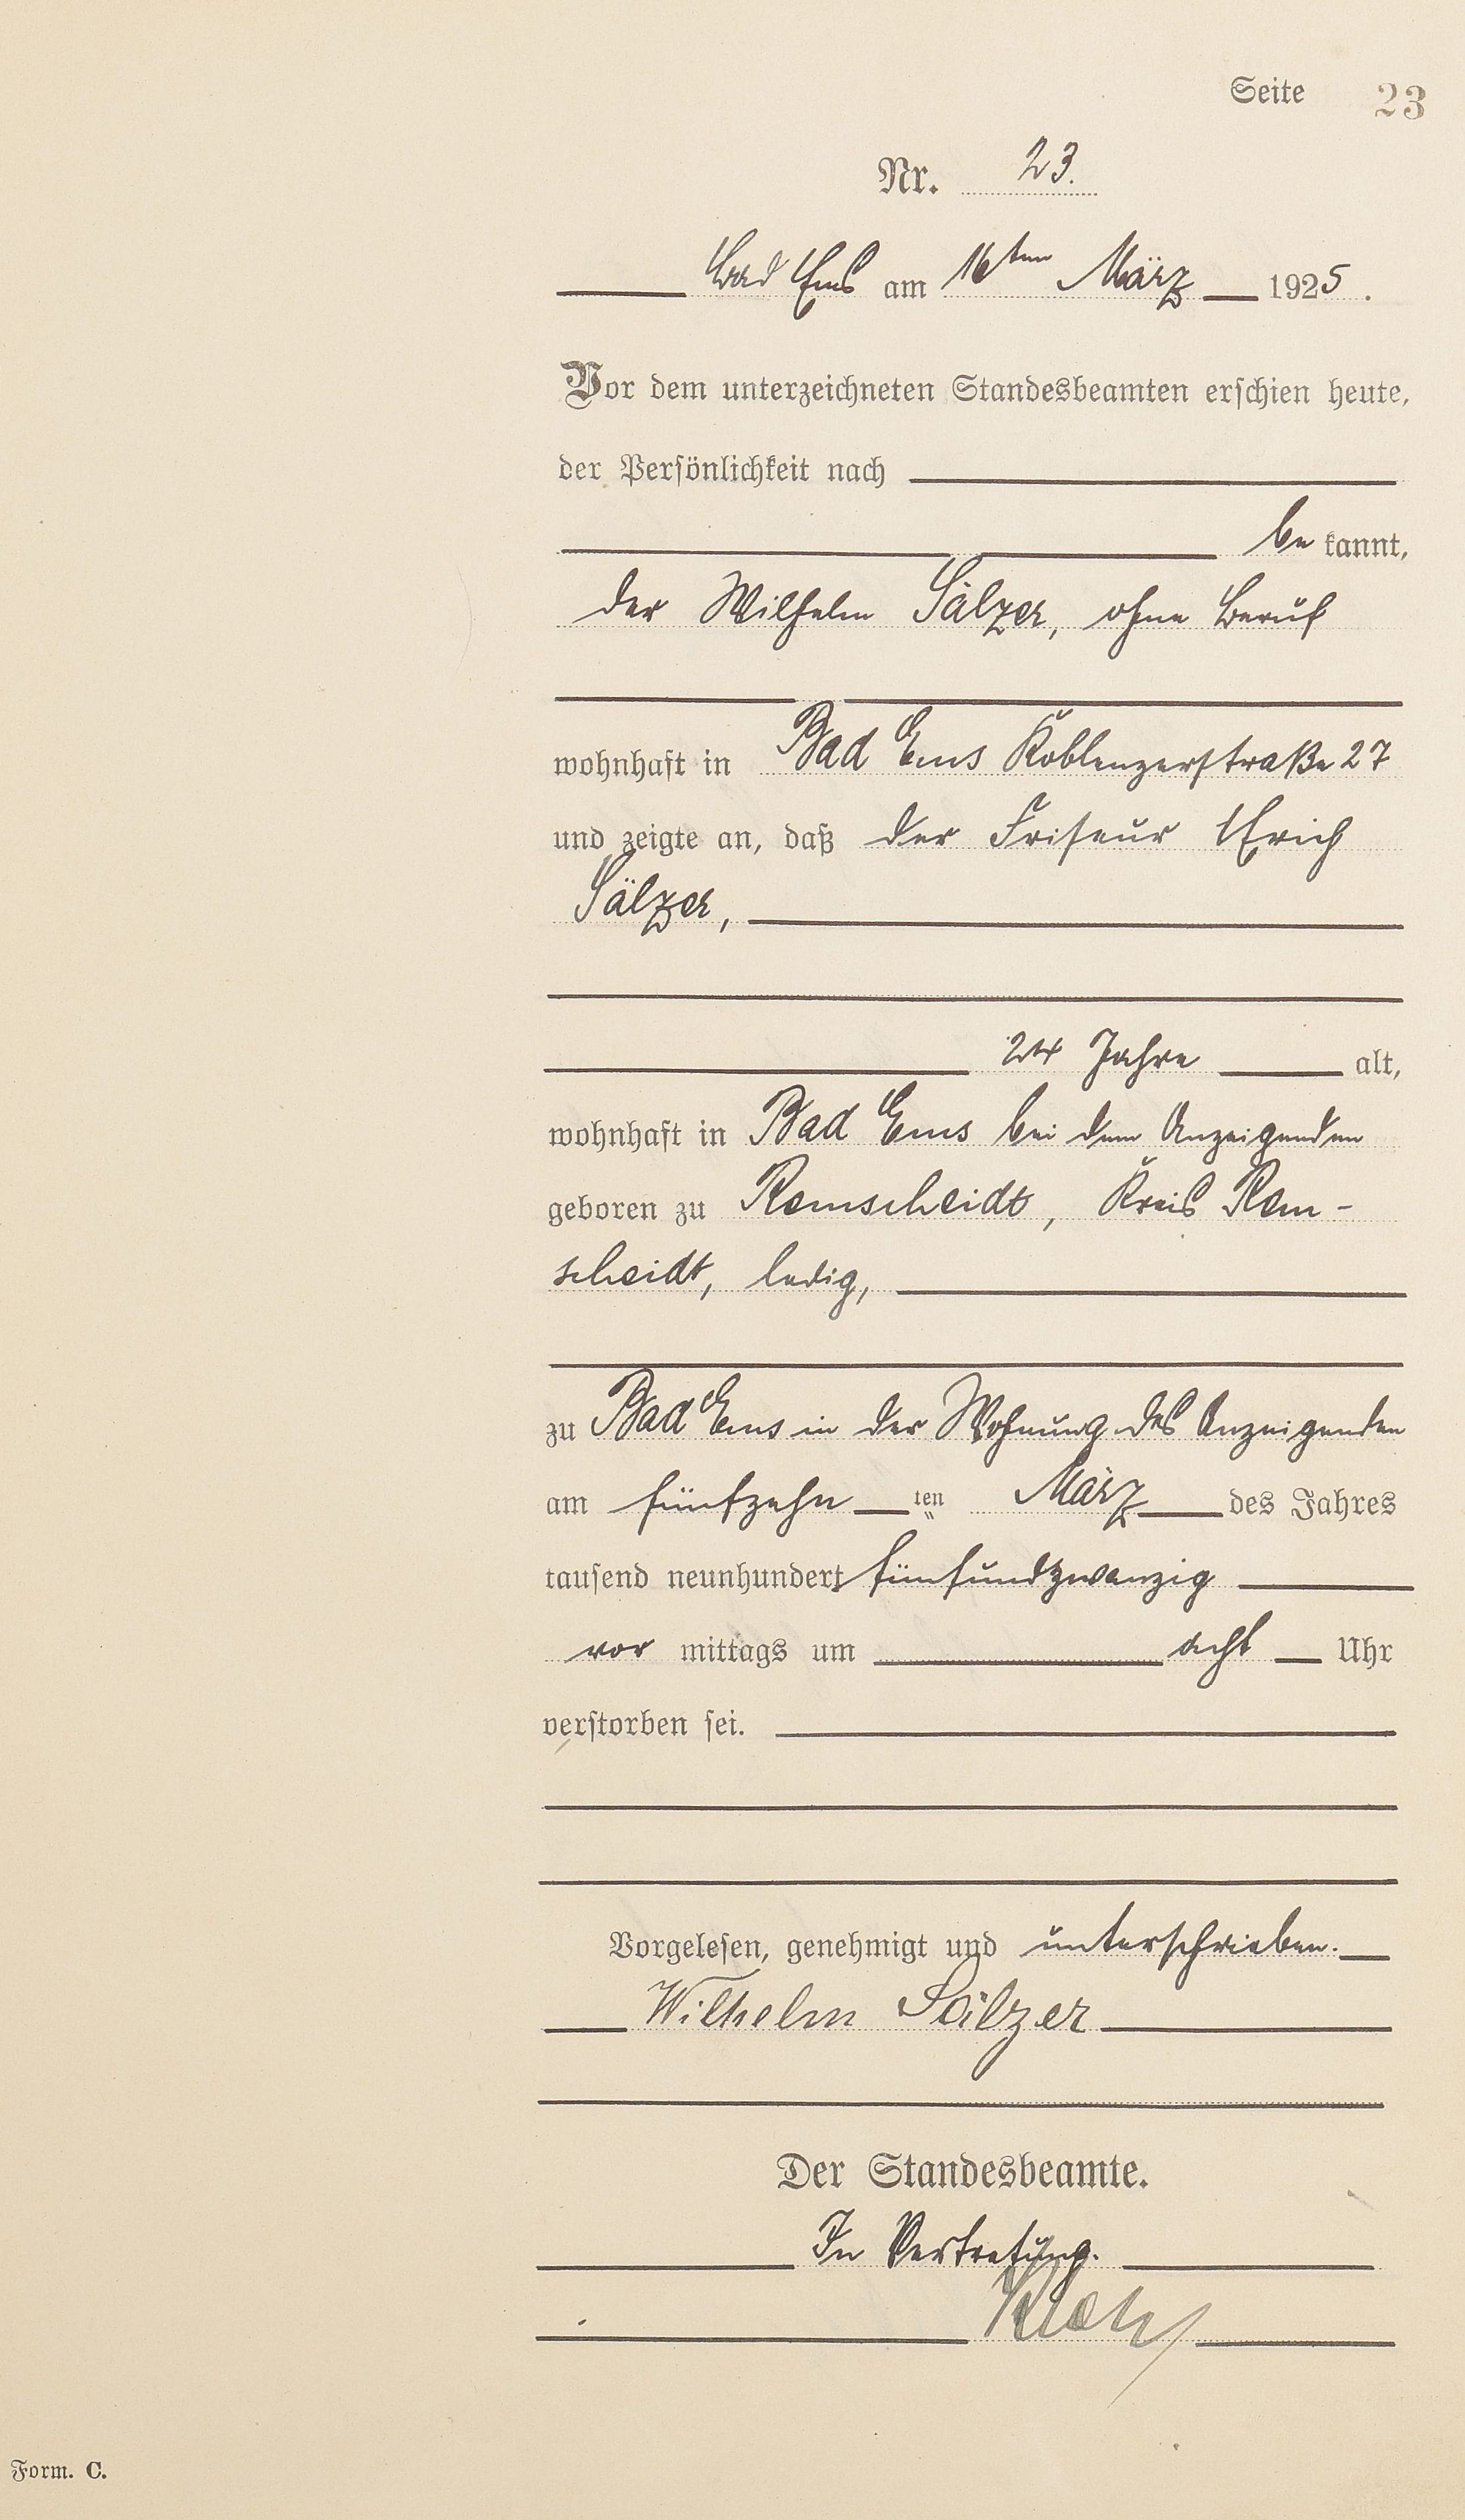 Seite 23
Nr. 23.
Bad Ems am 16ten März 1925.
Vor dem unterzeichneten Standesbeamten erschien heute,
der Persönlichkeit nach
be kannt,
der Wilhelm Sälzer, ohne Beruf
wohnhaft in Bad Ems Koblenzerstraße 27
und zeigte an, daß der Friseur Erich
Sälzer,
24 Jahre alt,
wohnhaft in Bad Ems bei dem Anzeigenden
geboren zu Remscheidt, Kreis Rem-
scheidt, ledig,
zu Bad Ems in der Wohnung des Anzeigenden
am fünfzehn ten März des Jahres
tausend neunhundert fünfundzwanzig
vor mittags um acht Uhr
verstorben sei.
Vorgelesen, genehmigt und unterschrieben.
Wilhelm Sälzer
Der Standesbeamte.
In Vertretung.
Form. C.